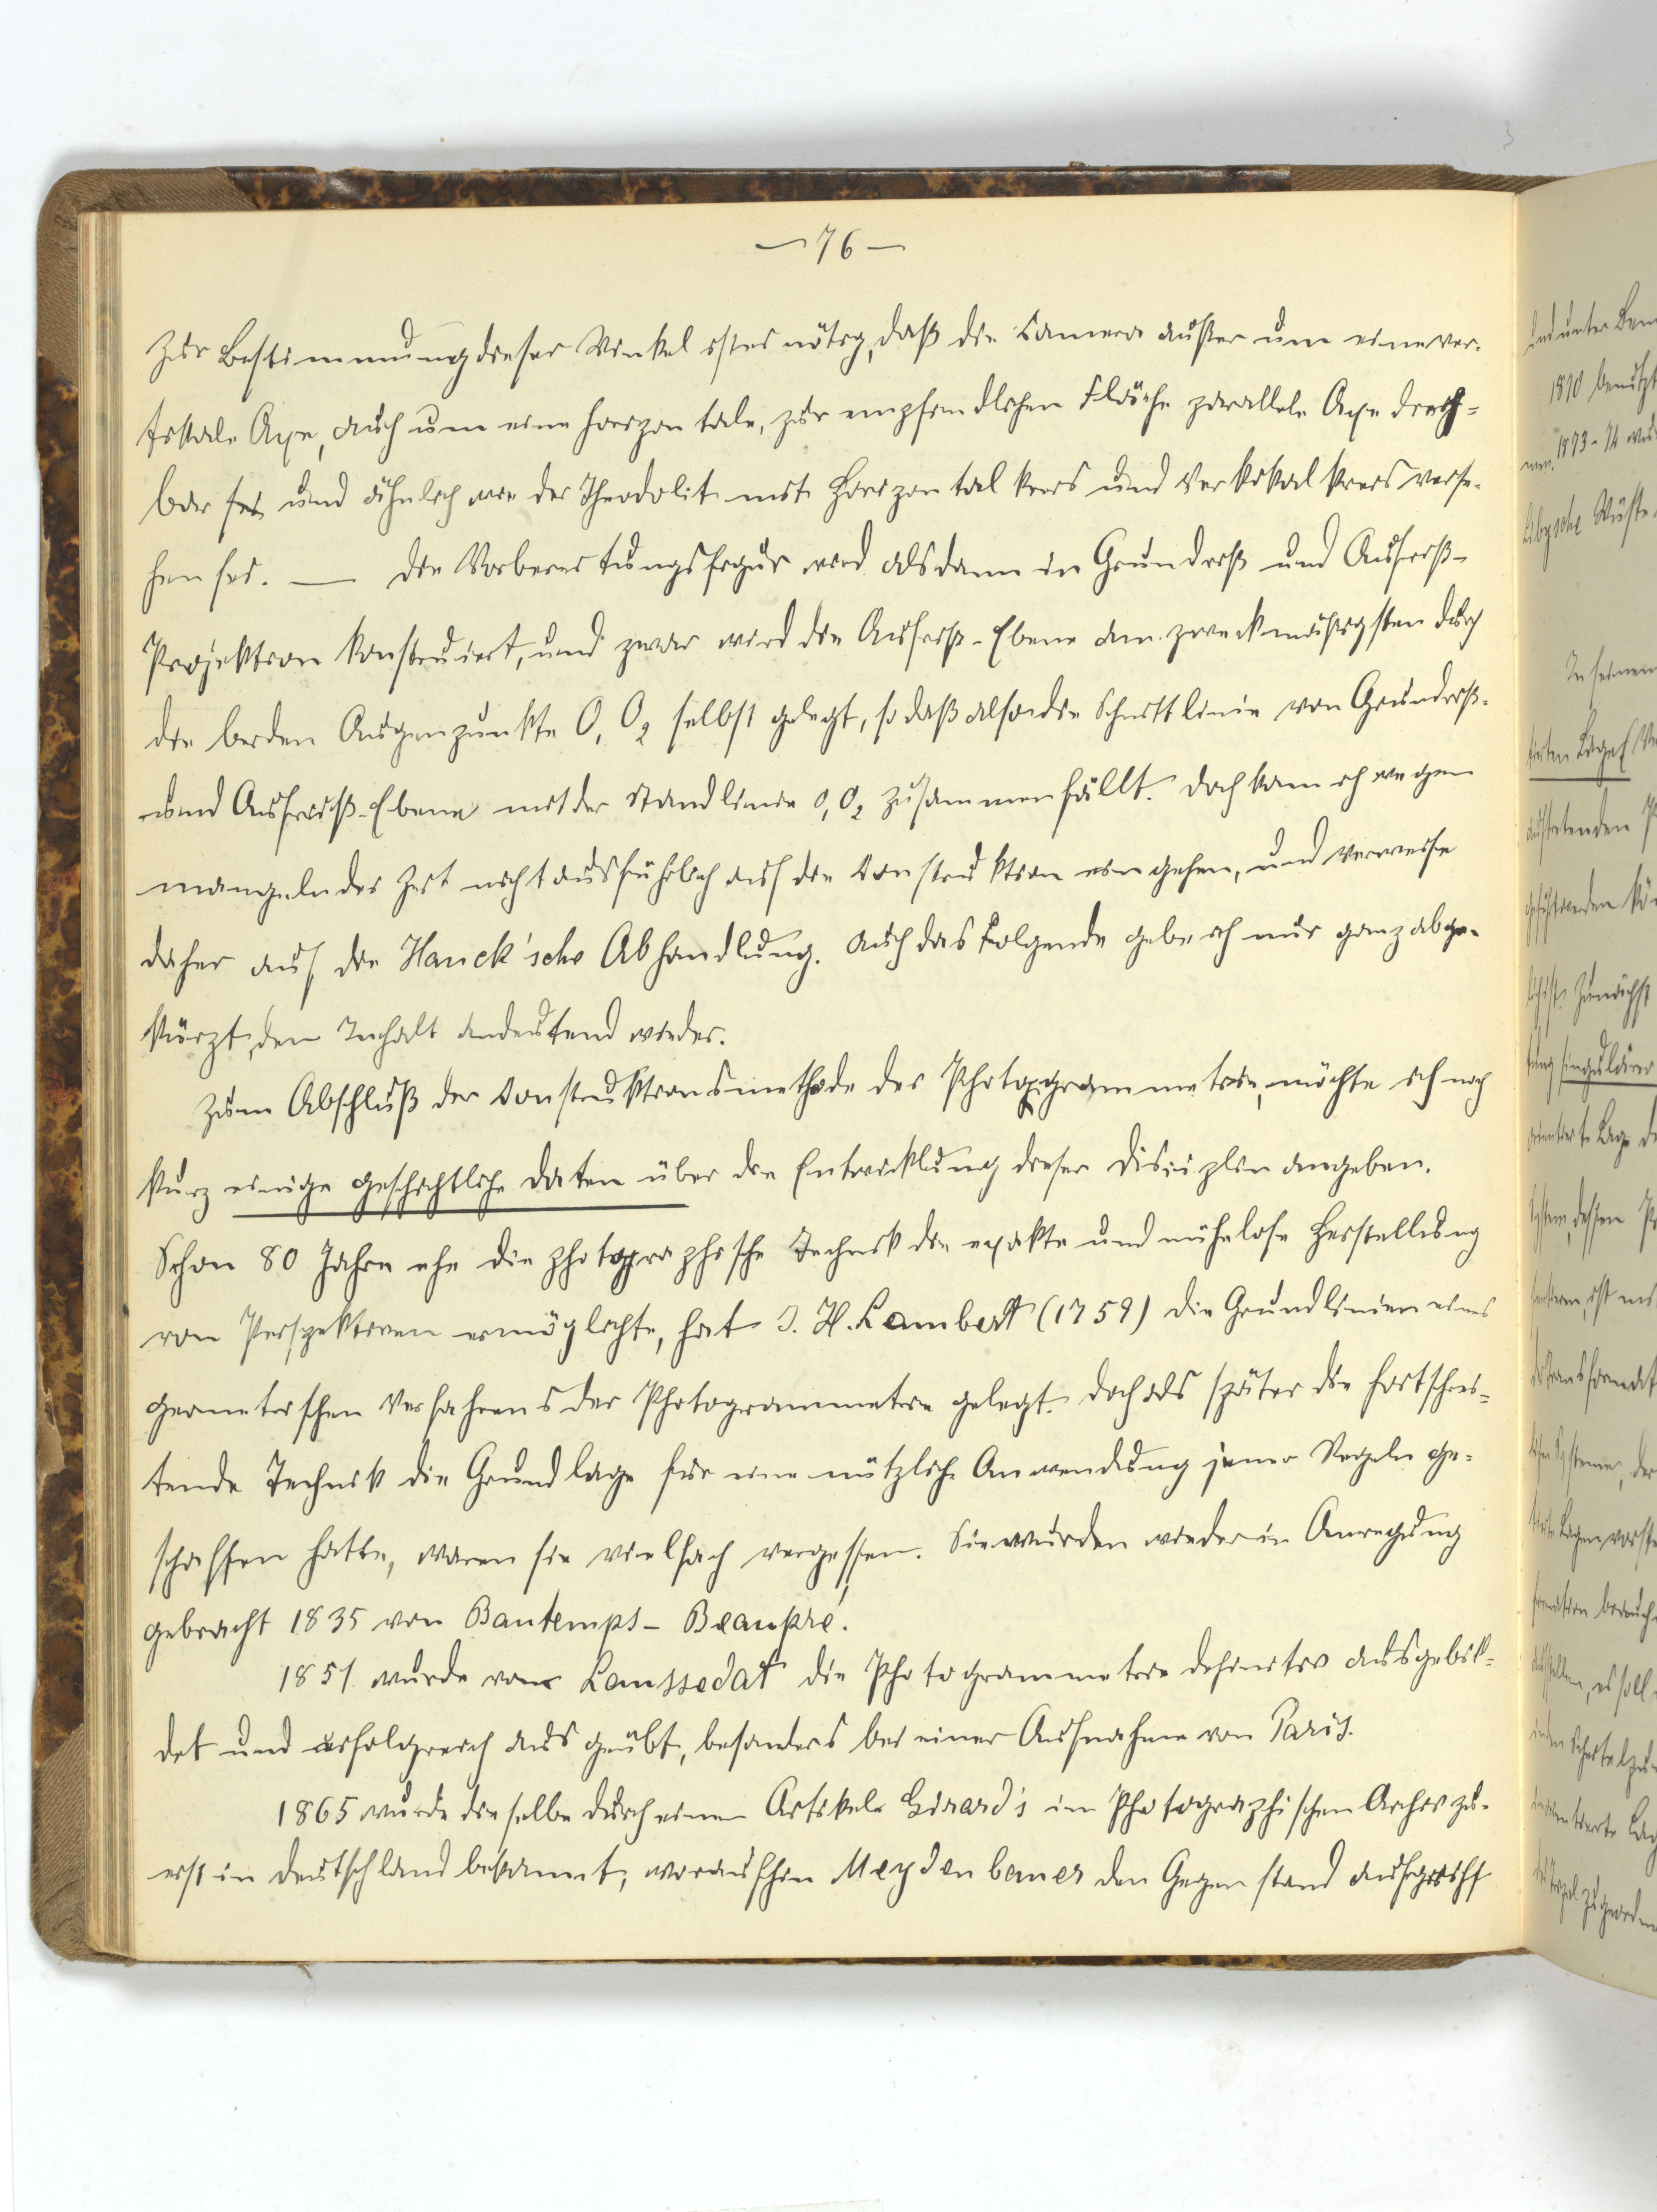 — 76 —
Zur Bestimmung dieser Winkel ist es nötig, daß die Camera außer um eine ver-
tikale Axe, auch um eine horizontale, zur empfindlichen Fläche parallele Axe dreh-
bar sei und ähnlich wie der Theodolit mit Horizontalkreis und Vertikalkreis verse-
hen sei. — Die Vorbereitungsfigur wird alsdann in Grundriß und Aufriß-
Projektion konstruiert, und zwar wird die Aufriß-Ebene am zweckmäßigsten durch
die beiden Augenpunkte O₁ O₂ selbst gelegt, so daß also die Schnittlinie von Grundriß-
und Aufriß-Ebene mit der Standlinie O₁ O₂ zusammenfällt. Doch kann ich wegen
mangelnder Zeit nicht ausführlich auf die Construktion eingehen, und verweise
daher auf die Hauck'sche Abhandlung. Auch das Folgende gebe ich nur ganz abge-
kürzt, den Inhalt andeutend wieder.
Zum Abschluß der Construktionsmethode der Photogrammetrie, möchte ich noch
kurz einige geschichtliche Daten über die Entwicklung dieser Disciplin angeben.
Schon 80 Jahre ehe die photographische Technik die exakte und mühelose Herstellung
von Perspektiven ermöglichte, hat J. H. Lambert (1759) die Grundlinien eines
geometrischen Verfahrens der Photogrammetrie gelegt. Doch als später die fortschrei-
tende Technik die Grundlage für eine nützliche Anwendung jener Regeln ge-
schaffen hatte, waren sie vielfach vergessen. Sie wurden wieder in Anregung
gebracht 1835 von Bautemps-Beaupré.
1851 wurde von Laussedat die Photogrammetrie definitiv ausgebil-
det und erfolgreich ausgeübt, besonders bei einer Aufnahme von Paris.
1865 wurde dieselbe durch einen Artikel Girard's im Photographischen Archiv zu-
erst in Deutschland bekannt, woraufhin Meydenbauer den Gegenstand aufgriff
und unter
1870 benutzt
1873-74
Libysche Wüste
In seinem
austretenden
Zunächst
singulärer
orientierte Lage
System, dessen